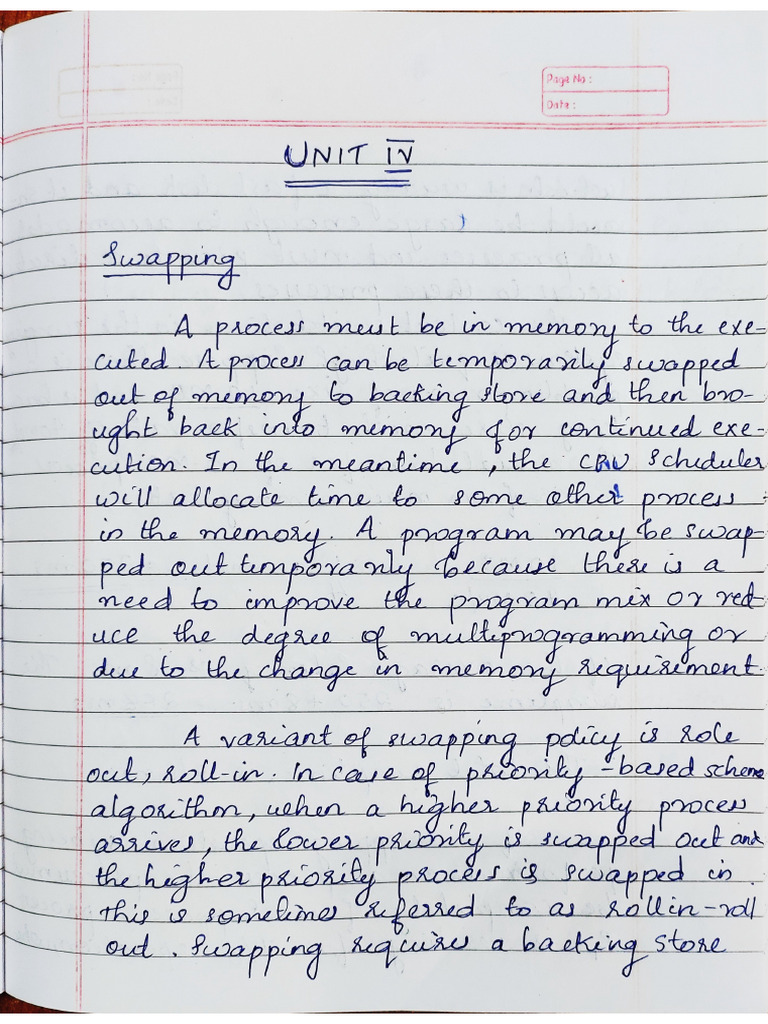 Page No :
Date :
UNIT IV
Swapping
A process must be in memory to the exe-
cuted. A process can be temporarily swapped
out of memory to backing store and then bro-
ught back into memory for continued exe-
cution. In the meantime, the CPU scheduler
will allocate time to some other process
in the memory. A program may be swap-
ped out temporarily because there is a
need to improve the program mix or red
uce the degree of multiprogramming or
due to the change in memory requirement.
A variant of swapping policy is role
out, roll-in. In case of priority-based scheme
algorithm, when a higher priority process
arrives, the lower priority is swapped out and
the higher priority process is swapped in.
This is sometimes referred to as rollin-roll
out. Swapping requires a backing store